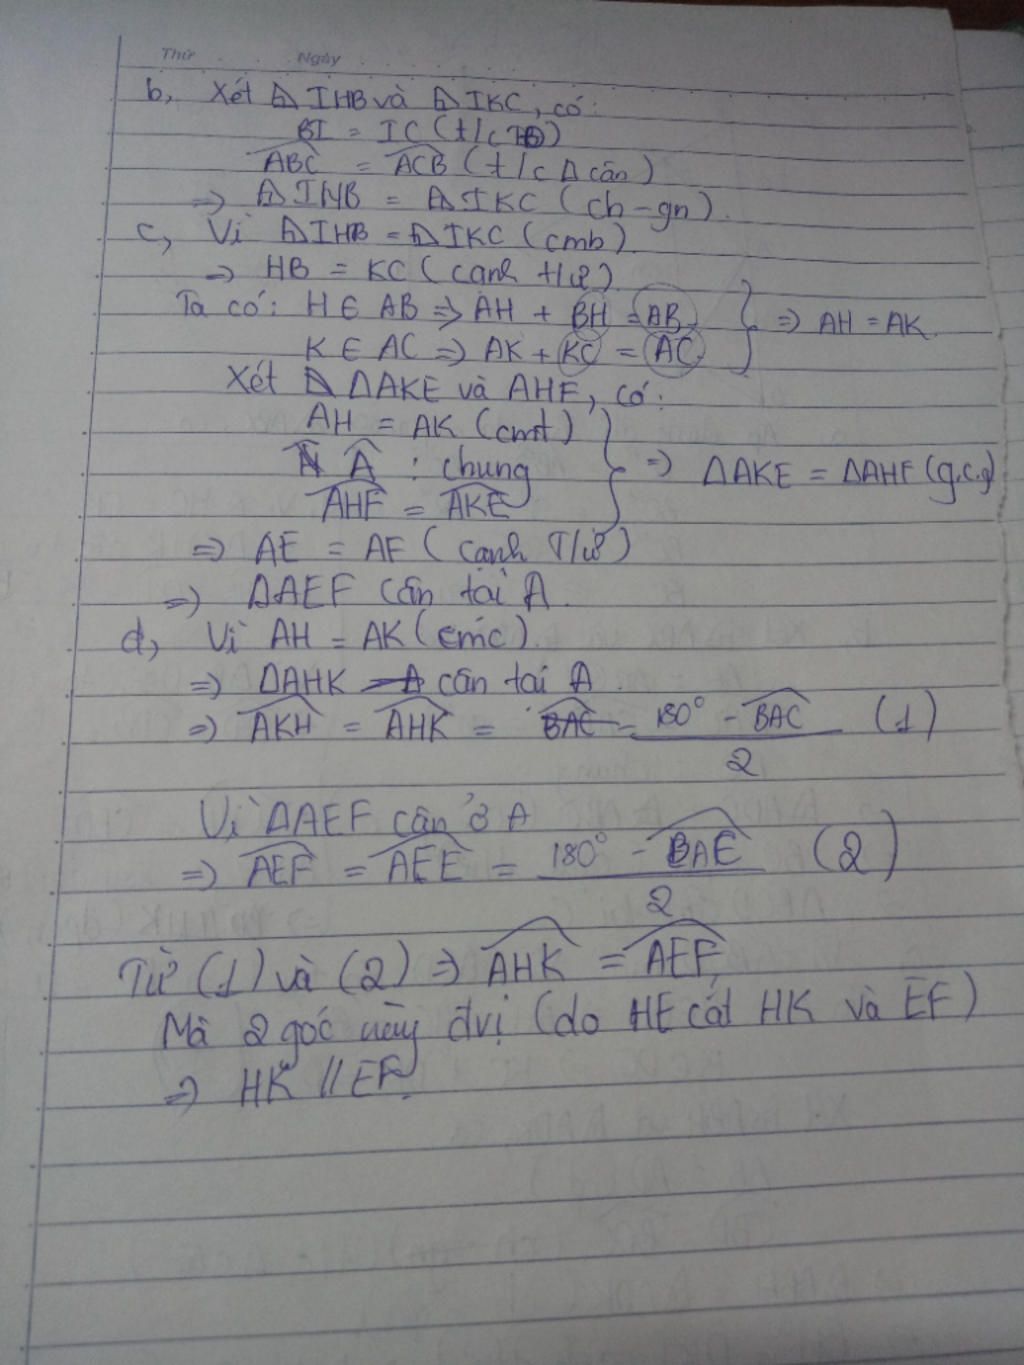 Thứ Ngày
b, Xét △IHB và △IKC, có:
BI = IC (t/c TĐ)
ABC = ACB (t/c Δ cân)
=> △IHB = △IKC (ch-gn).
c, Vì △IHB = △IKC (cmb)
=> HB = KC (cạnh t/ứ)
Ta có: H ∈ AB => AH + BH = AB
K ∈ AC => AK + KC = AC } => AH = AK.
Xét ΔAKE và AHF, có:
AH = AK (cmt)
A : chung
AHF = AKE } => ΔAKE = ΔAHF (g.c.g)
=> AE = AF (cạnh T/ứ)
=> ΔAEF cân tại A.
d, Vì AH = AK (cmc)
=> ΔAHK cân tại A.
=> AKH = AHK = (180° - BAC)/2 (1)
Vì ΔAEF cân ở A
=> AEF = AEE = (180° - BAC)/2 (2)
Từ (1) và (2) => AHK = AEF,
Mà 2 góc này đvị (do HE cắt HK và EF)
=> HK // EF.